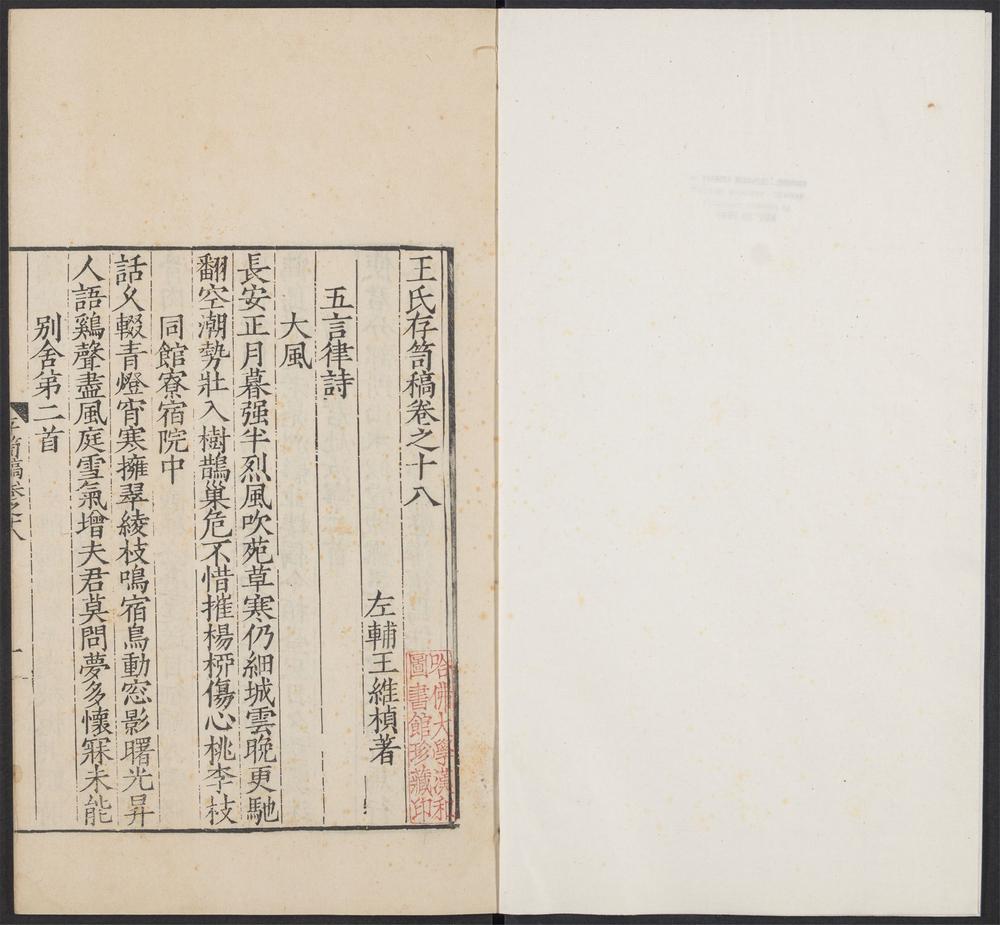 王氏存笥稿卷之十八
左輔王維楨著
五言律詩
大風
長安正月暮强半烈風吹苑草寒仍細城雲晚更馳
翻空潮勢壯入樹鵲巢危不惜摧楊桺傷心桃李枝
同館寮宿院中
話久輟青燈宵寒擁翠綾枝鳴宿鳥動窓影曙光昇
人語鷄聲盡風庭雪氣增夫君莫問夢多懷寐未能
别舍第二首
存笥稿卷之十八
一
哈佛大學漢和
圖書館珍藏印